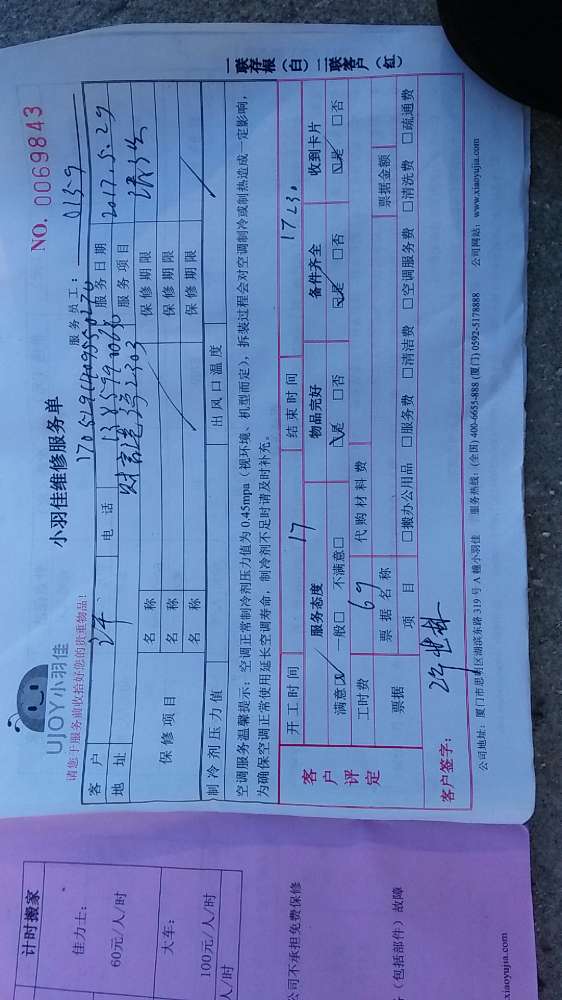 UJOY小羽佳
小羽佳维修服务单
NO. 0069843
请您于服务前收拾好您的贵重物品!
服务员工: 0159
客户
电话
服务日期 2017.5.29
地址
服务项目
保修项目
名称 保修期限
名称 保修期限
名称 保修期限
制冷剂压力值 出风口温度
空调服务温馨提示:空调正常制冷剂压力值为0.45mpa(视环境、机型而定),拆装过程会对空调制冷或制热造成一定影响,
为确保空调正常使用延长空调寿命,制冷剂不足时请及时补充。
开工时间 17 结束时间 1730
客户评定
服务态度 物品完好 备件齐全 收到卡片
满意☑ 一般□ 不满意□ ☑是 □否 ☑是 □否 ☑是 □否
工时费 69 代购材料费
票据 票据名称 票据金额
项目 □搬办公用品 □服务费 □清洁费 □空调服务费 □清洗费 □疏通费
客户签字:
公司地址:厦门市思明区湖滨东路319号A幢小羽佳 服务热线:(全国) 400-6655-888 (厦门) 0592-5178888 公司网站:www.xiaoyujia.com
一联存根(白)二联客户(红)
计时搬家
佳力士:
60元/人/时
大车:
100元/人/时
人/时
公司不承担免费保修
(包括部件)故障
xiaoyujia.com